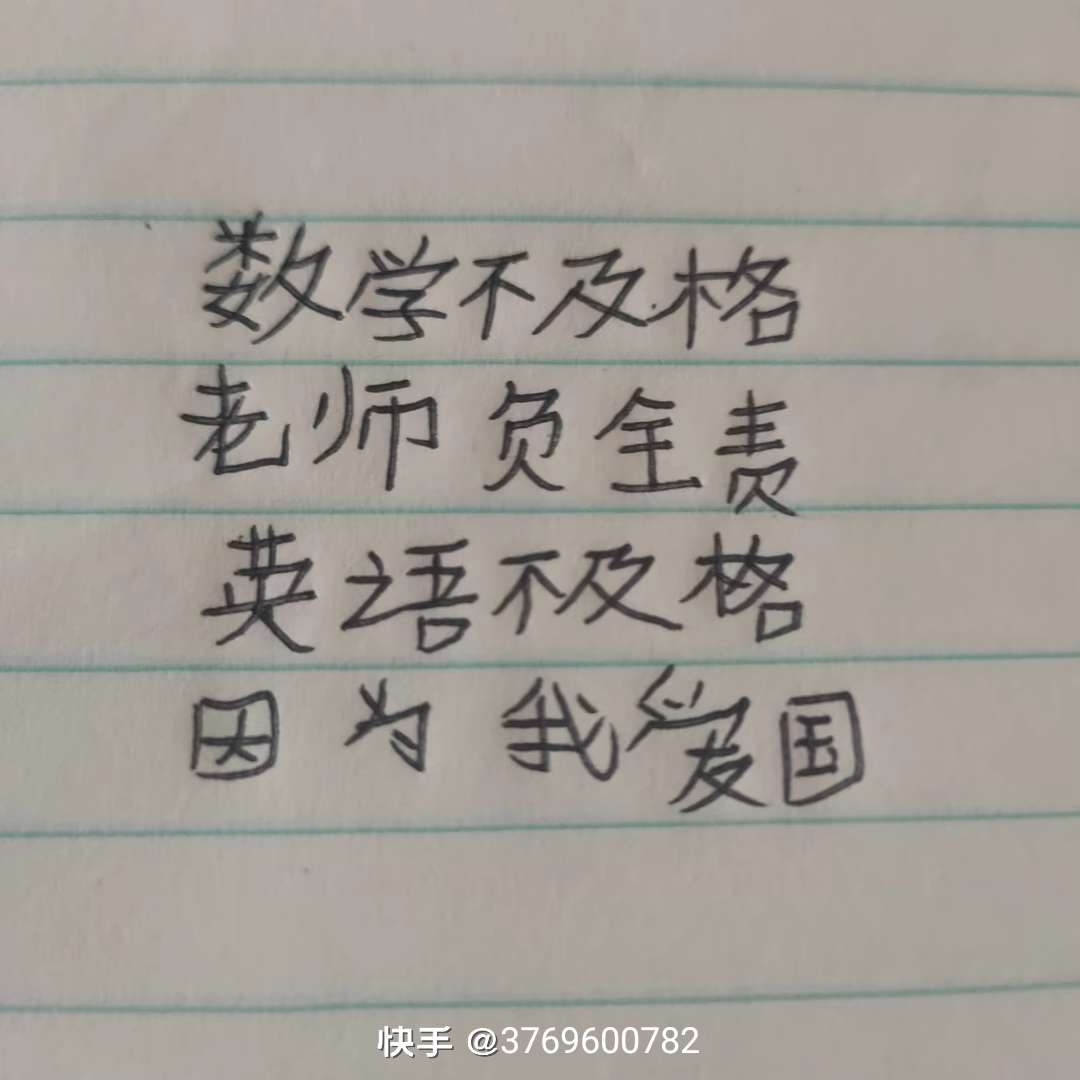 数学不及格
老师负全责
英语不及格
因为我爱国
快手 @3769600782